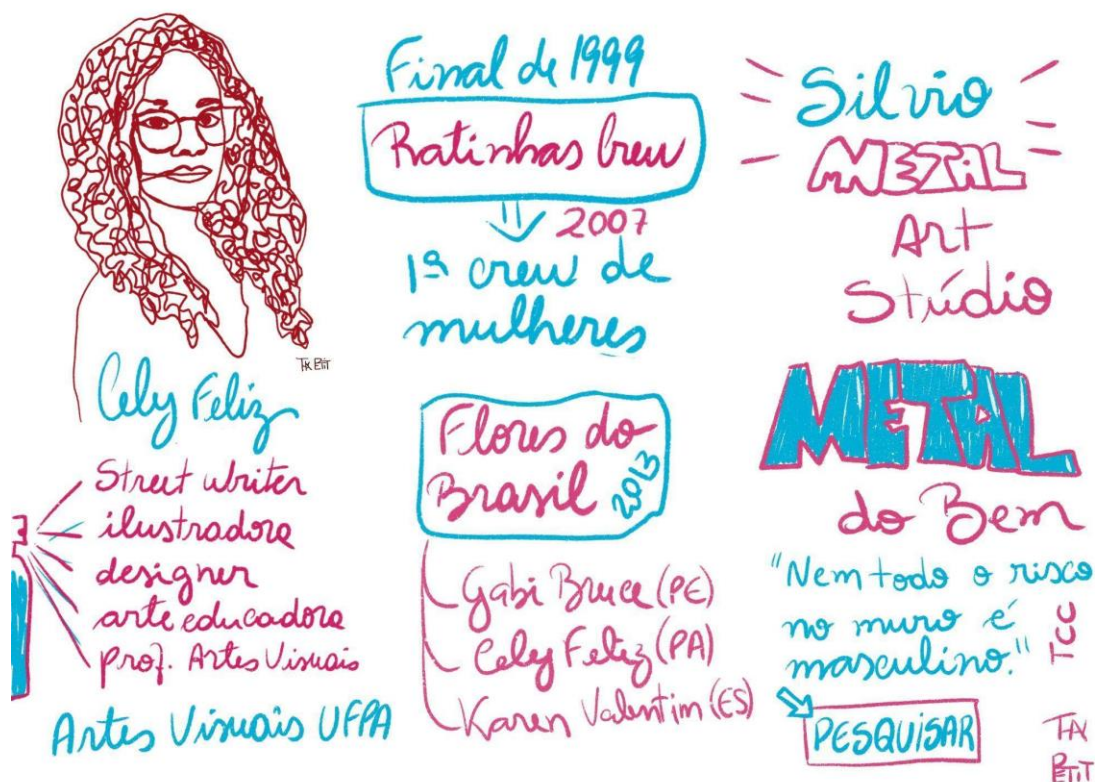 THX PETIT
Cely Feliz
Street writer
ilustradora
designer
arte educadora
prof. Artes Visuais
Artes Visuais UFPA
Final de 1999
Ratinhas Crew
2007
1ª crew de
mulheres
Flores do
Brasil 2013
Gabi Bruce (PE)
Cely Feliz (PA)
Karen Valentim (ES)
Silvio
METAL
Art
Stúdio
METAL
do Bem
"Nem todo o risco
no muro é
masculino."
TCC
PESQUISAR
PETIT